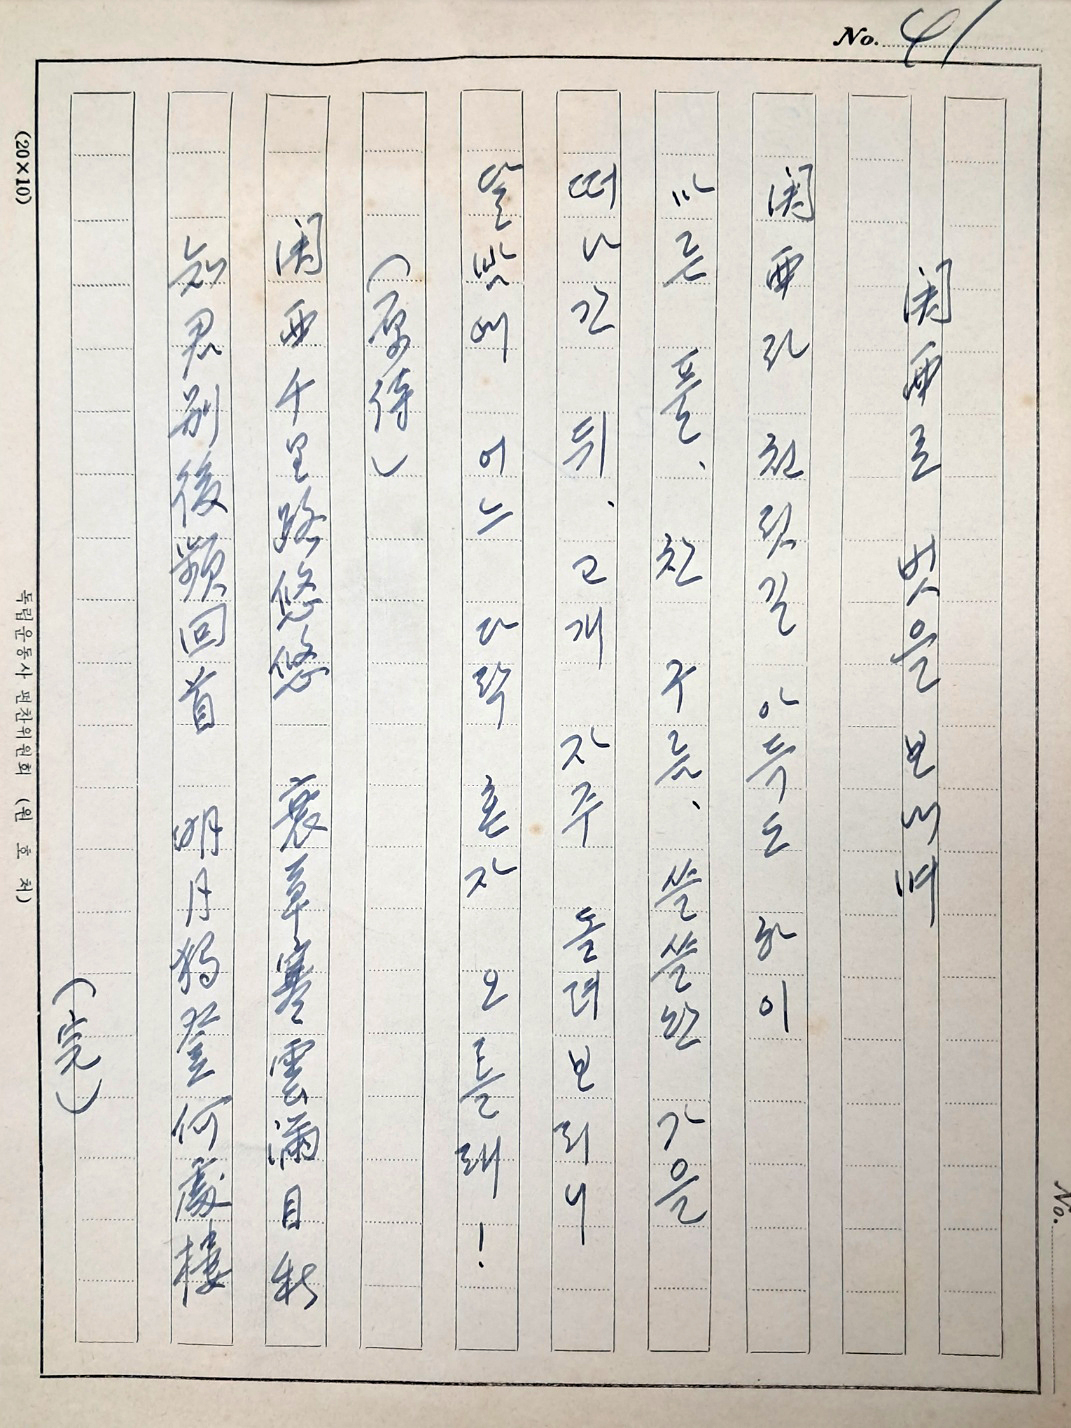 No. 41
關西로 벗을 보내며
關西라 천릿길 아득도 하이
마른 풀、찬 구름、쓸쓸한 가을
떠나간 뒤、고개 자주 돌려보리니
달밤에 어느 다락 혼자 오를래!
(原詩)
關西千里路悠悠 衰草寒雲滿目秋
知君別後頻回首 明月獨登何處樓
(完)
(20×10)
독립운동사 편찬위원회 (원호처)
No.